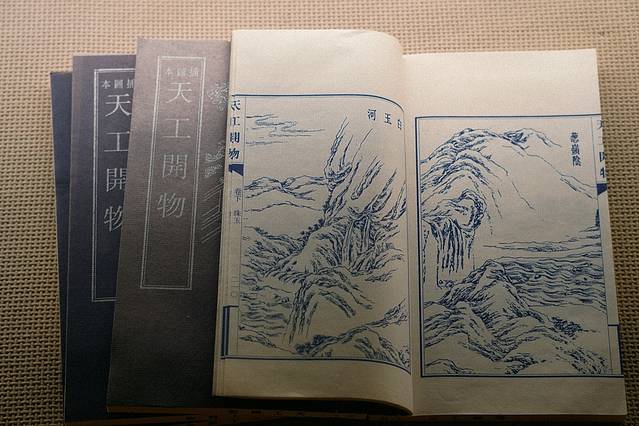 插圖本
天工開物
插圖本
天工開物
白玉河
天工開物
卷下 珠玉
葱嶺陰